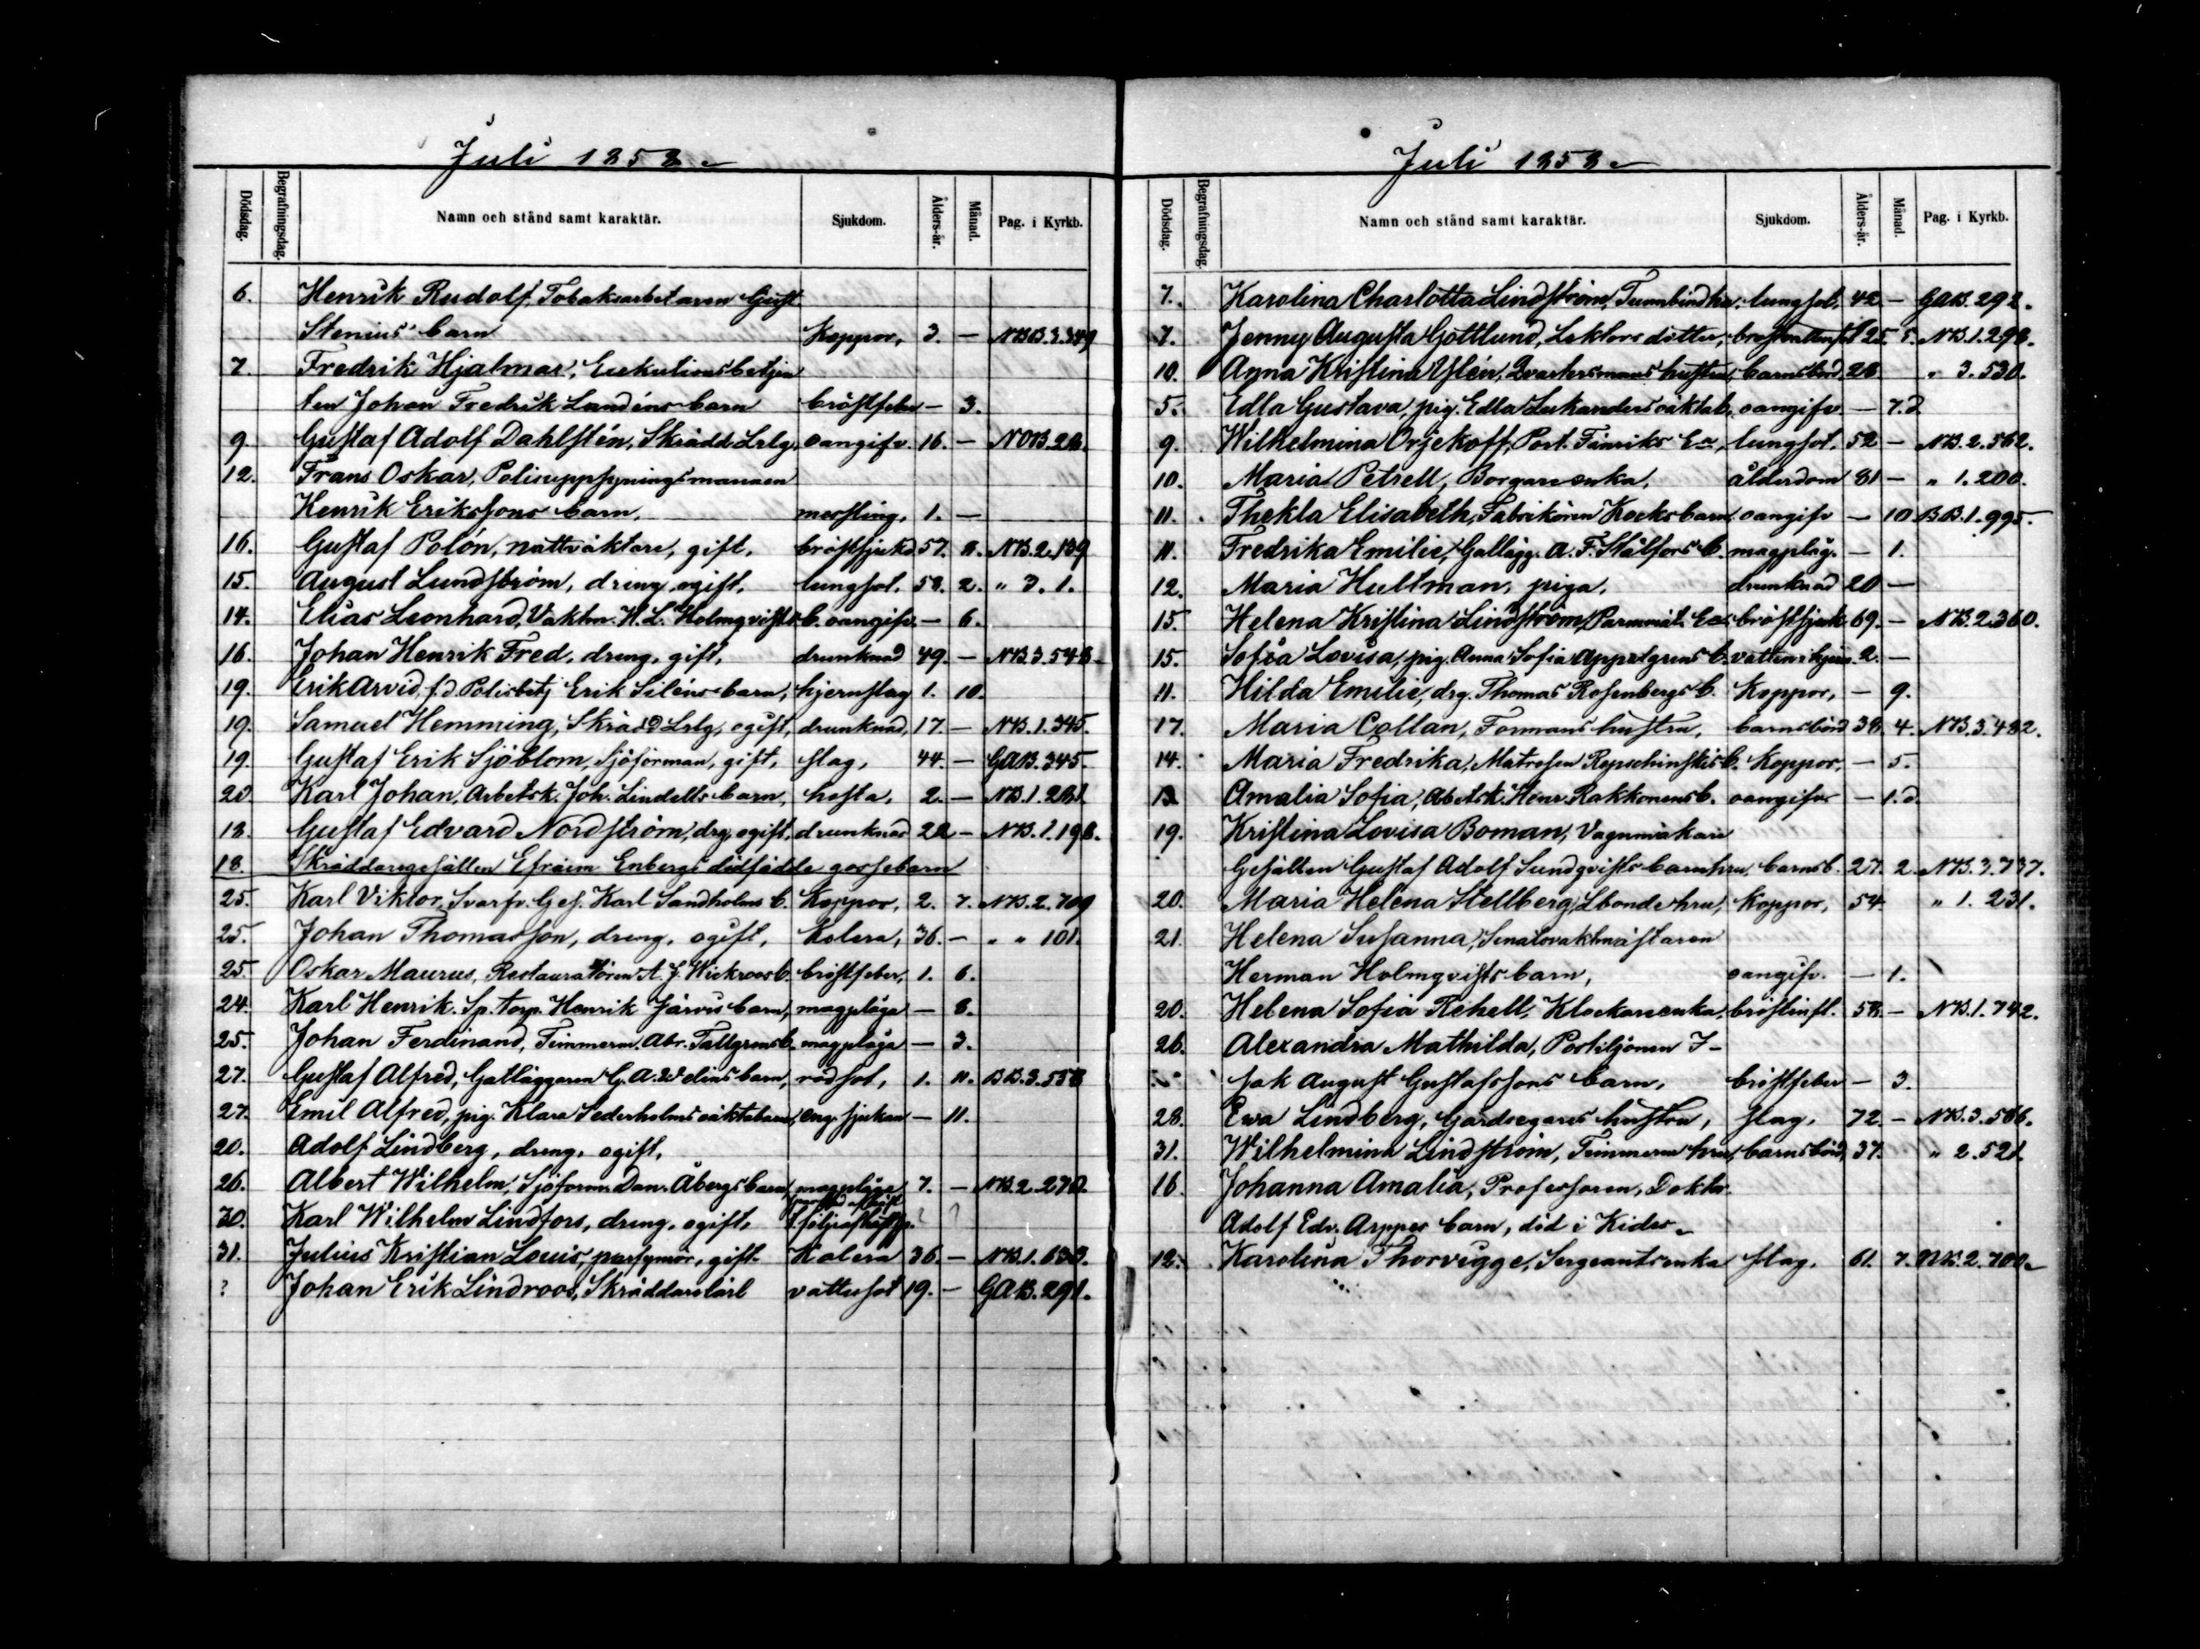 Juli 1853
Dödsdag. Begrafningsdag. Namn och stånd samt karaktär. Sjukdom. Ålders-år. Månad. Pag. i Kyrkb.
6. Henrik Rudolf, Tobaksarbetaren Gust
Stenius' barn Koppor, 3. — NBB.3.349
7. Fredrik Hjalmar, Exekutionsbetjen
ten Johan Fredrik Lundéns barn bröstfeber — 3.
9. Gustaf Adolf Dahlstén, Skrädd Lrlg. oangifv. 16. —
12. Frans Oskar, Polisuppsyningsmannen
Henrik Erikssons barn. messling. 1. —
16. Gustaf Polón, nattväktare, gift. bröstsjukd 57. NB.2.139
15. August Lundström, dreng, ogift, lungsot. 2. " 3. 1.
14. Elias Leonhard, Vaktm. H. L. Holmqvists b. oangifv. — 6.
16. Johan Henrik Fred. dreng, gift, drunknad 49. — NB.3.548
19. Erik Arvid, f.d Polisbetj Erik Siléns barn, hjernslag 1. 10.
19. Samuel Hemming, Skrädd Lrlg, ogift, drunknad, 17. — NB.1.345.
19. Gustaf Erik Sjöblom, Sjöforman, gift, slag, 44. — GAB.345.
20 Karl Johan, Arbetsk. Joh. Lindells barn, hosta, 2. — NB.1.281
18. Gustaf Edvard Nordström, drg, ogift, drunknad 22 — NB.1.198.
18. Skräddaregesällen Efraim Enbergs dödfödde gossebarn
25. Karl Viktor, Svarfv. Ges. Karl Sandholms b. Koppor, 2. 7. NB.2.709
25. Johan Thomasson, dreng, ogift, Kolera, 36. — " " 101.
25 Oskar Maurus, Restauratören A. J. Wickroos b. bröstfeber, 1. 6.
24. Karl Henrik. Sp. torp. Henrik Järvis barn, magplåga — 8.
25. Johan Ferdinand, Timmerm. Abr. Tallgrens b. magplåga — 3.
27. Gustaf Alfred, Gatläggaren G. A. Welins barn, rödsot, 1. 11. BB.3.558
27. Emil Alfred, pig. Klara Sederholms oäkta barn, eng. sjukan — 11.
20. Adolf Lindberg, dreng. ogift.
26. Albert Wilhelm, Sjöform. Dan. Åbergs barn, magplåga 7. — NB.2.270.
30. Karl Wilhelm Lindfors, dreng, ogift, ? ?
31. Julius Kristian Louis, parfymör, gift Kolera 36. — NB.1.633.
? Johan Erik Lindroos, Skräddarelärl vattusot 19. — GAB.291.
Juli 1853
Dödsdag. Begrafningsdag. Namn och stånd samt karaktär. Sjukdom. Ålders-år. Månad. Pag. i Kyrkb.
7. Karolina Charlotta Lindström, Tunnbind hu. lungsot. 42 — GAB.292.
7. Jenny Augusta Gottlund, Lektors dotter, 25. 5. NB.1.298.
10. Anna Kristina Ylén, Qvartersmans hustru, barnsbörd, 28 " 3.530.
5. Edla Gustava, pig. Edla Lukanders oäkta b. oangifv. — 7.d
9. Wilhelmina Orjekoff, Port. Fänriks Ea, lungsot. 52 — NB.2.562.
10. Maria Petrell, Borgareenka, ålderdom 81 — " 1.200.
11. Thekla Elisabeth, Fabrikören Kocks barn, oangifv — 10 BB.1.995.
11. Fredrika Emilie, Gatlägg. A. F. Stålfors b. magplåg. — 1.
12. Maria Hultman, piga, drunknad 20 —
15. Helena Kristina Lindström, bröstsjuk 69. — NB.2.360.
15. Sofia Lovisa, pig. Anna Sofia Appelgrens b. vatten i hjern. 2. —
11. Hilda Emilie, drg. Thomas Rosenbergs b. Koppor, — 9.
17. Maria Collan, Formans hustru, barnsbörd 38 4. NB.3.482.
14. Maria Fredrika, Matrosen Repschinskis b. Koppor, — 5.
13 Amalia Sofia, Arbetsk. Henr. Rakkonens b. oangifv — 1.d.
19. Kristina Lovisa Boman, Vagnmakare
Gesällen Gustaf Adolf Sundqvists barn hru, barnsb. 27. 2. NB.3.737.
20. Maria Helena Stellberg, Lbonde hru, Koppor, 54 " 1. 231.
21. Helena Susanna, Senatsvaktmästaren
Herman Holmqvists barn, oangifv. — 1.
20. Helena Sofia Rehell, Klockareenka, bröstinfl. 58 — NB.1.742.
26. Alexandra Mathilda, Postiljonen I-
sak August Gustafssons barn, bröstfeber — 3.
28. Ewa Lindberg, Gårdsegares hustru, slag. 72. — NB.3.566.
31. Wilhelmina Lindström, Timmerm hru, barnsbörd, 37. " 2.521
16. Johanna Amalia, Professoren, Doktor
Adolf Edv. Arppes barn, död i Kides
12. Karolina Thorvigge, Sergeantsenka slag. 61. 7. NB.2.700